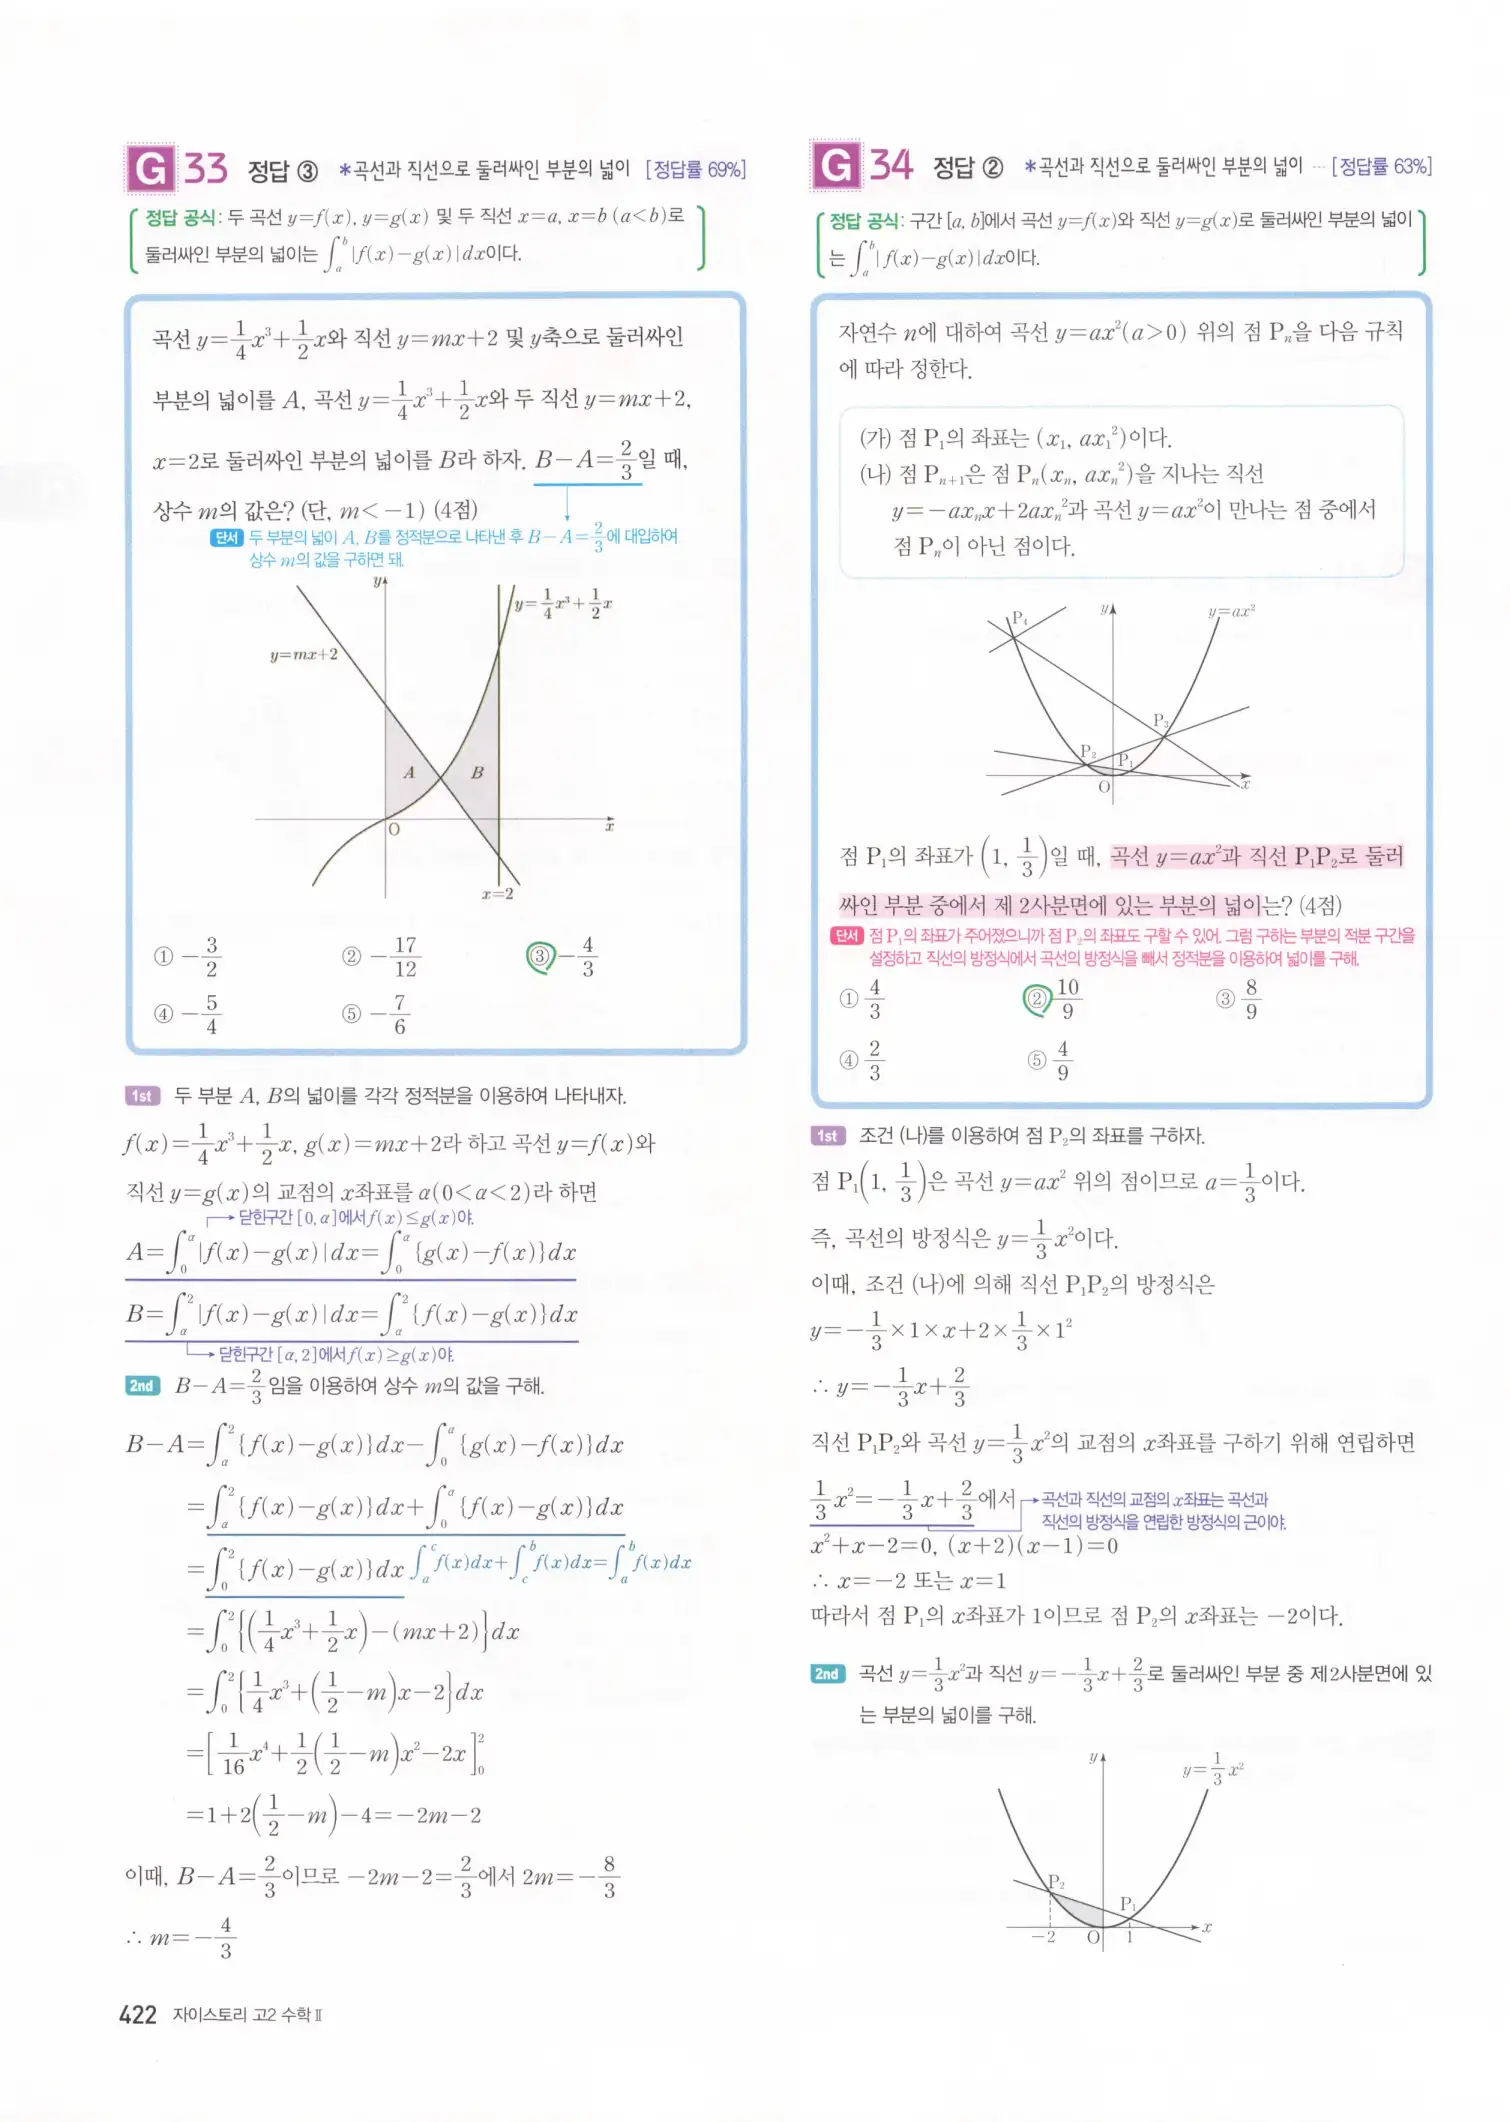 G 33 정답 ③ *곡선과 직선으로 둘러싸인 부분의 넓이 [정답률 69%]
정답 공식: 두 곡선 y=f(x), y=g(x) 및 두 직선 x=a, x=b (a<b)로
둘러싸인 부분의 넓이는 ∫_a^b |f(x)-g(x)|dx이다.
곡선 y=1/4x³+1/2x와 직선 y=mx+2 및 y축으로 둘러싸인
부분의 넓이를 A, 곡선 y=1/4x³+1/2x와 두 직선 y=mx+2,
x=2로 둘러싸인 부분의 넓이를 B라 하자. B-A=2/3일 때,
상수 m의 값은? (단, m<-1) (4점)
단서 두 부분의 넓이 A, B를 정적분으로 나타낸 후 B-A=2/3에 대입하여
상수 m의 값을 구하면 돼.
y
y=1/4x³+1/2x
y=mx+2
A
B
O
x
x=2
① -3/2 ② -17/12 ③ -4/3
④ -5/4 ⑤ -7/6
1st 두 부분 A, B의 넓이를 각각 정적분을 이용하여 나타내자.
f(x)=1/4x³+1/2x, g(x)=mx+2라 하고 곡선 y=f(x)와
직선 y=g(x)의 교점의 x좌표를 α(0<α<2)라 하면
닫힌구간 [0, α]에서 f(x)≤g(x)야.
A=∫_0^α |f(x)-g(x)|dx=∫_0^α {g(x)-f(x)}dx
B=∫_α^2 |f(x)-g(x)|dx=∫_α^2 {f(x)-g(x)}dx
닫힌구간 [α, 2]에서 f(x)≥g(x)야.
2nd B-A=2/3임을 이용하여 상수 m의 값을 구해.
B-A=∫_α^2 {f(x)-g(x)}dx-∫_0^α {g(x)-f(x)}dx
=∫_α^2 {f(x)-g(x)}dx+∫_0^α {f(x)-g(x)}dx
=∫_0^2 {f(x)-g(x)}dx ∫_a^c f(x)dx+∫_c^b f(x)dx=∫_a^b f(x)dx
=∫_0^2 {(1/4x³+1/2x)-(mx+2)}dx
=∫_0^2 {1/4x³+(1/2-m)x-2}dx
=[1/16x⁴+1/2(1/2-m)x²-2x]_0^2
=1+2(1/2-m)-4=-2m-2
이때, B-A=2/3이므로 -2m-2=2/3에서 2m=-8/3
∴ m=-4/3
422 자이스토리 고2 수학Ⅱ
G 34 정답 ② *곡선과 직선으로 둘러싸인 부분의 넓이 ··· [정답률 63%]
정답 공식: 구간 [a, b]에서 곡선 y=f(x)와 직선 y=g(x)로 둘러싸인 부분의 넓이
는 ∫_a^b |f(x)-g(x)|dx이다.
자연수 n에 대하여 곡선 y=ax²(a>0) 위의 점 Pₙ을 다음 규칙
에 따라 정한다.
(가) 점 P₁의 좌표는 (x₁, ax₁²)이다.
(나) 점 Pₙ₊₁은 점 Pₙ(xₙ, axₙ²)을 지나는 직선
y=-axₙx+2axₙ²과 곡선 y=ax²이 만나는 점 중에서
점 Pₙ이 아닌 점이다.
P₄
y
y=ax²
P₃
P₂
P₁
O
x
점 P₁의 좌표가 (1, 1/3)일 때, 곡선 y=ax²과 직선 P₁P₂로 둘러
싸인 부분 중에서 제 2사분면에 있는 부분의 넓이는? (4점)
단서 점 P₁의 좌표가 주어졌으니까 점 P₂의 좌표도 구할 수 있어. 그럼 구하는 부분의 적분 구간을
설정하고 직선의 방정식에서 곡선의 방정식을 빼서 정적분을 이용하여 넓이를 구해.
① 4/3 ② 10/9 ③ 8/9
④ 2/3 ⑤ 4/9
1st 조건 (나)를 이용하여 점 P₂의 좌표를 구하자.
점 P₁(1, 1/3)은 곡선 y=ax² 위의 점이므로 a=1/3이다.
즉, 곡선의 방정식은 y=1/3x²이다.
이때, 조건 (나)에 의해 직선 P₁P₂의 방정식은
y=-1/3×1×x+2×1/3×1²
∴ y=-1/3x+2/3
직선 P₁P₂와 곡선 y=1/3x²의 교점의 x좌표를 구하기 위해 연립하면
1/3x²=-1/3x+2/3에서 곡선과 직선의 교점의 x좌표는 곡선과
직선의 방정식을 연립한 방정식의 근이야.
x²+x-2=0, (x+2)(x-1)=0
∴ x=-2 또는 x=1
따라서 점 P₁의 x좌표가 1이므로 점 P₂의 x좌표는 -2이다.
2nd 곡선 y=1/3x²과 직선 y=-1/3x+2/3로 둘러싸인 부분 중 제2사분면에 있
는 부분의 넓이를 구해.
y
y=1/3x²
P₂
P₁
-2
O
1
x